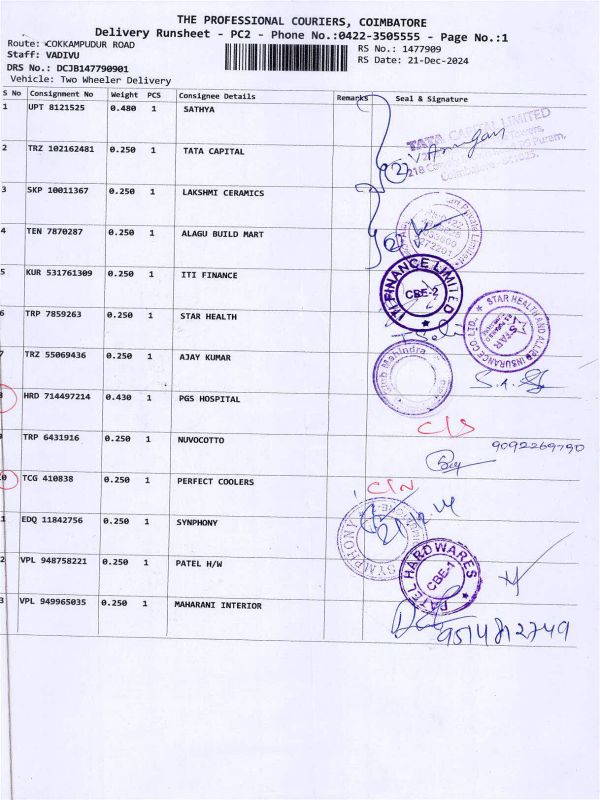 THE PROFESSIONAL COURIERS, COIMBATORE
Delivery Runsheet - PC2 - Phone No.:0422-3505555 - Page No.:1
Route: COKKAMPUDUR ROAD
RS No.: 1477909
Staff: VADIVU
RS Date: 21-Dec-2024
DRS No.: DCJB147790901
Vehicle: Two Wheeler Delivery
S No Consignment No Weight PCS Consignee Details Remarks Seal & Signature
1 UPT 8121525 0.480 1 SATHYA
TATA CAPITAL LIMITED
2 TRZ 102162481 0.250 1 TATA CAPITAL
3 SKP 10011367 0.250 1 LAKSHMI CERAMICS
4 TEN 7870287 0.250 1 ALAGU BUILD MART
5 KUR 531761309 0.250 1 ITI FINANCE
ITI FINANCE LIMITED
CBE-2
6 TRP 7859263 0.250 1 STAR HEALTH
STAR HEALTH AND ALLIED INSURANCE CO. LTD.
STAR
7 TRZ 55069436 0.250 1 AJAY KUMAR
Mahindra
8 HRD 714497214 0.430 1 PGS HOSPITAL
C/S
9 TRP 6431916 0.250 1 NUVOCOTTO
9092269790
10 TCG 410838 0.250 1 PERFECT COOLERS
C/N
1 EDQ 11842756 0.250 1 SYNPHONY
SYMPHONY
21.12.24
2 VPL 948758221 0.250 1 PATEL H/W
PATEL HARDWARES
CBE-1
3 VPL 949965035 0.250 1 MAHARANI INTERIOR
9514812749